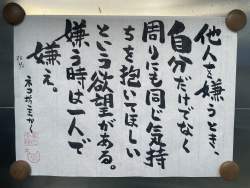 他人を嫌うとき、
自分だけでなく
周りにも同じ気持
ちを抱いてほしい
という欲望がある。
嫌う時は一人で
嫌え。